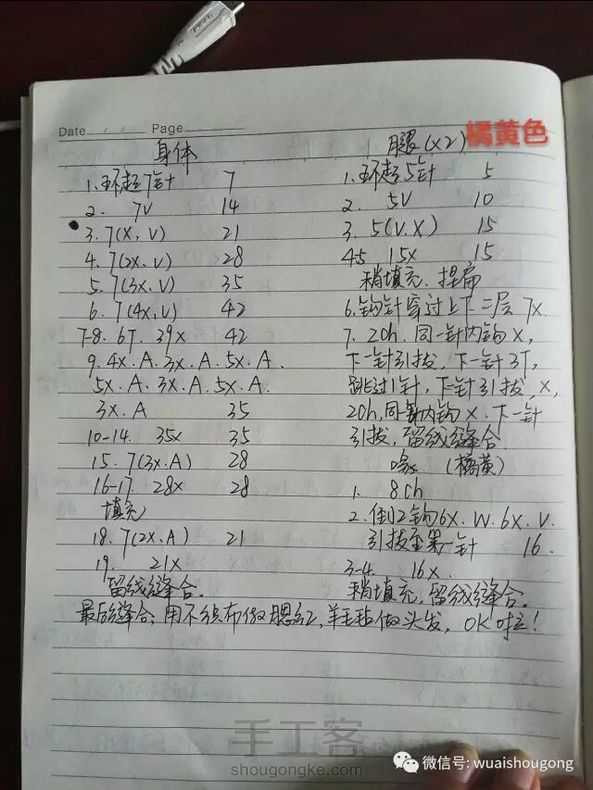 Date Page
身体
1.环起7针 7
2. 7V 14
3. 7(X,V) 21
4. 7(2X,V) 28
5. 7(3X,V) 35
6. 7(4X,V) 42
7-8. 6T. 39X 42
9. 4X.A.3X.A.5X.A.
5X.A.3X.A.5X.A.
3X.A 35
10-14. 35X 35
15. 7(3X.A) 28
16-17. 28X 28
填充
18. 7(2X.A) 21
19. 21X
留线缝合。
橘黄色
腿(X2)
1.环起5针 5
2. 5V 10
3. 5(V.X) 15
45 15X 15
稍填充.捏扁
6.钩针穿过上下二层7X.
7. 20h.同一针内钩X,
下一针引拔,下一针3T,
跳过1针,下针引拔,X,
20h,同一针内钩X.下一针
引拔,留线缝合.
(橘黄)
1. 8ch
2.倒2钩6X.W.6X.V.
引拔至第一针 16.
3-4. 16X.
稍填充,留线缝合。
最后缝合:用不织布做腮红,羊毛毡做头发, OK啦!
手工客
shougongke.com
微信号: wuaishougong